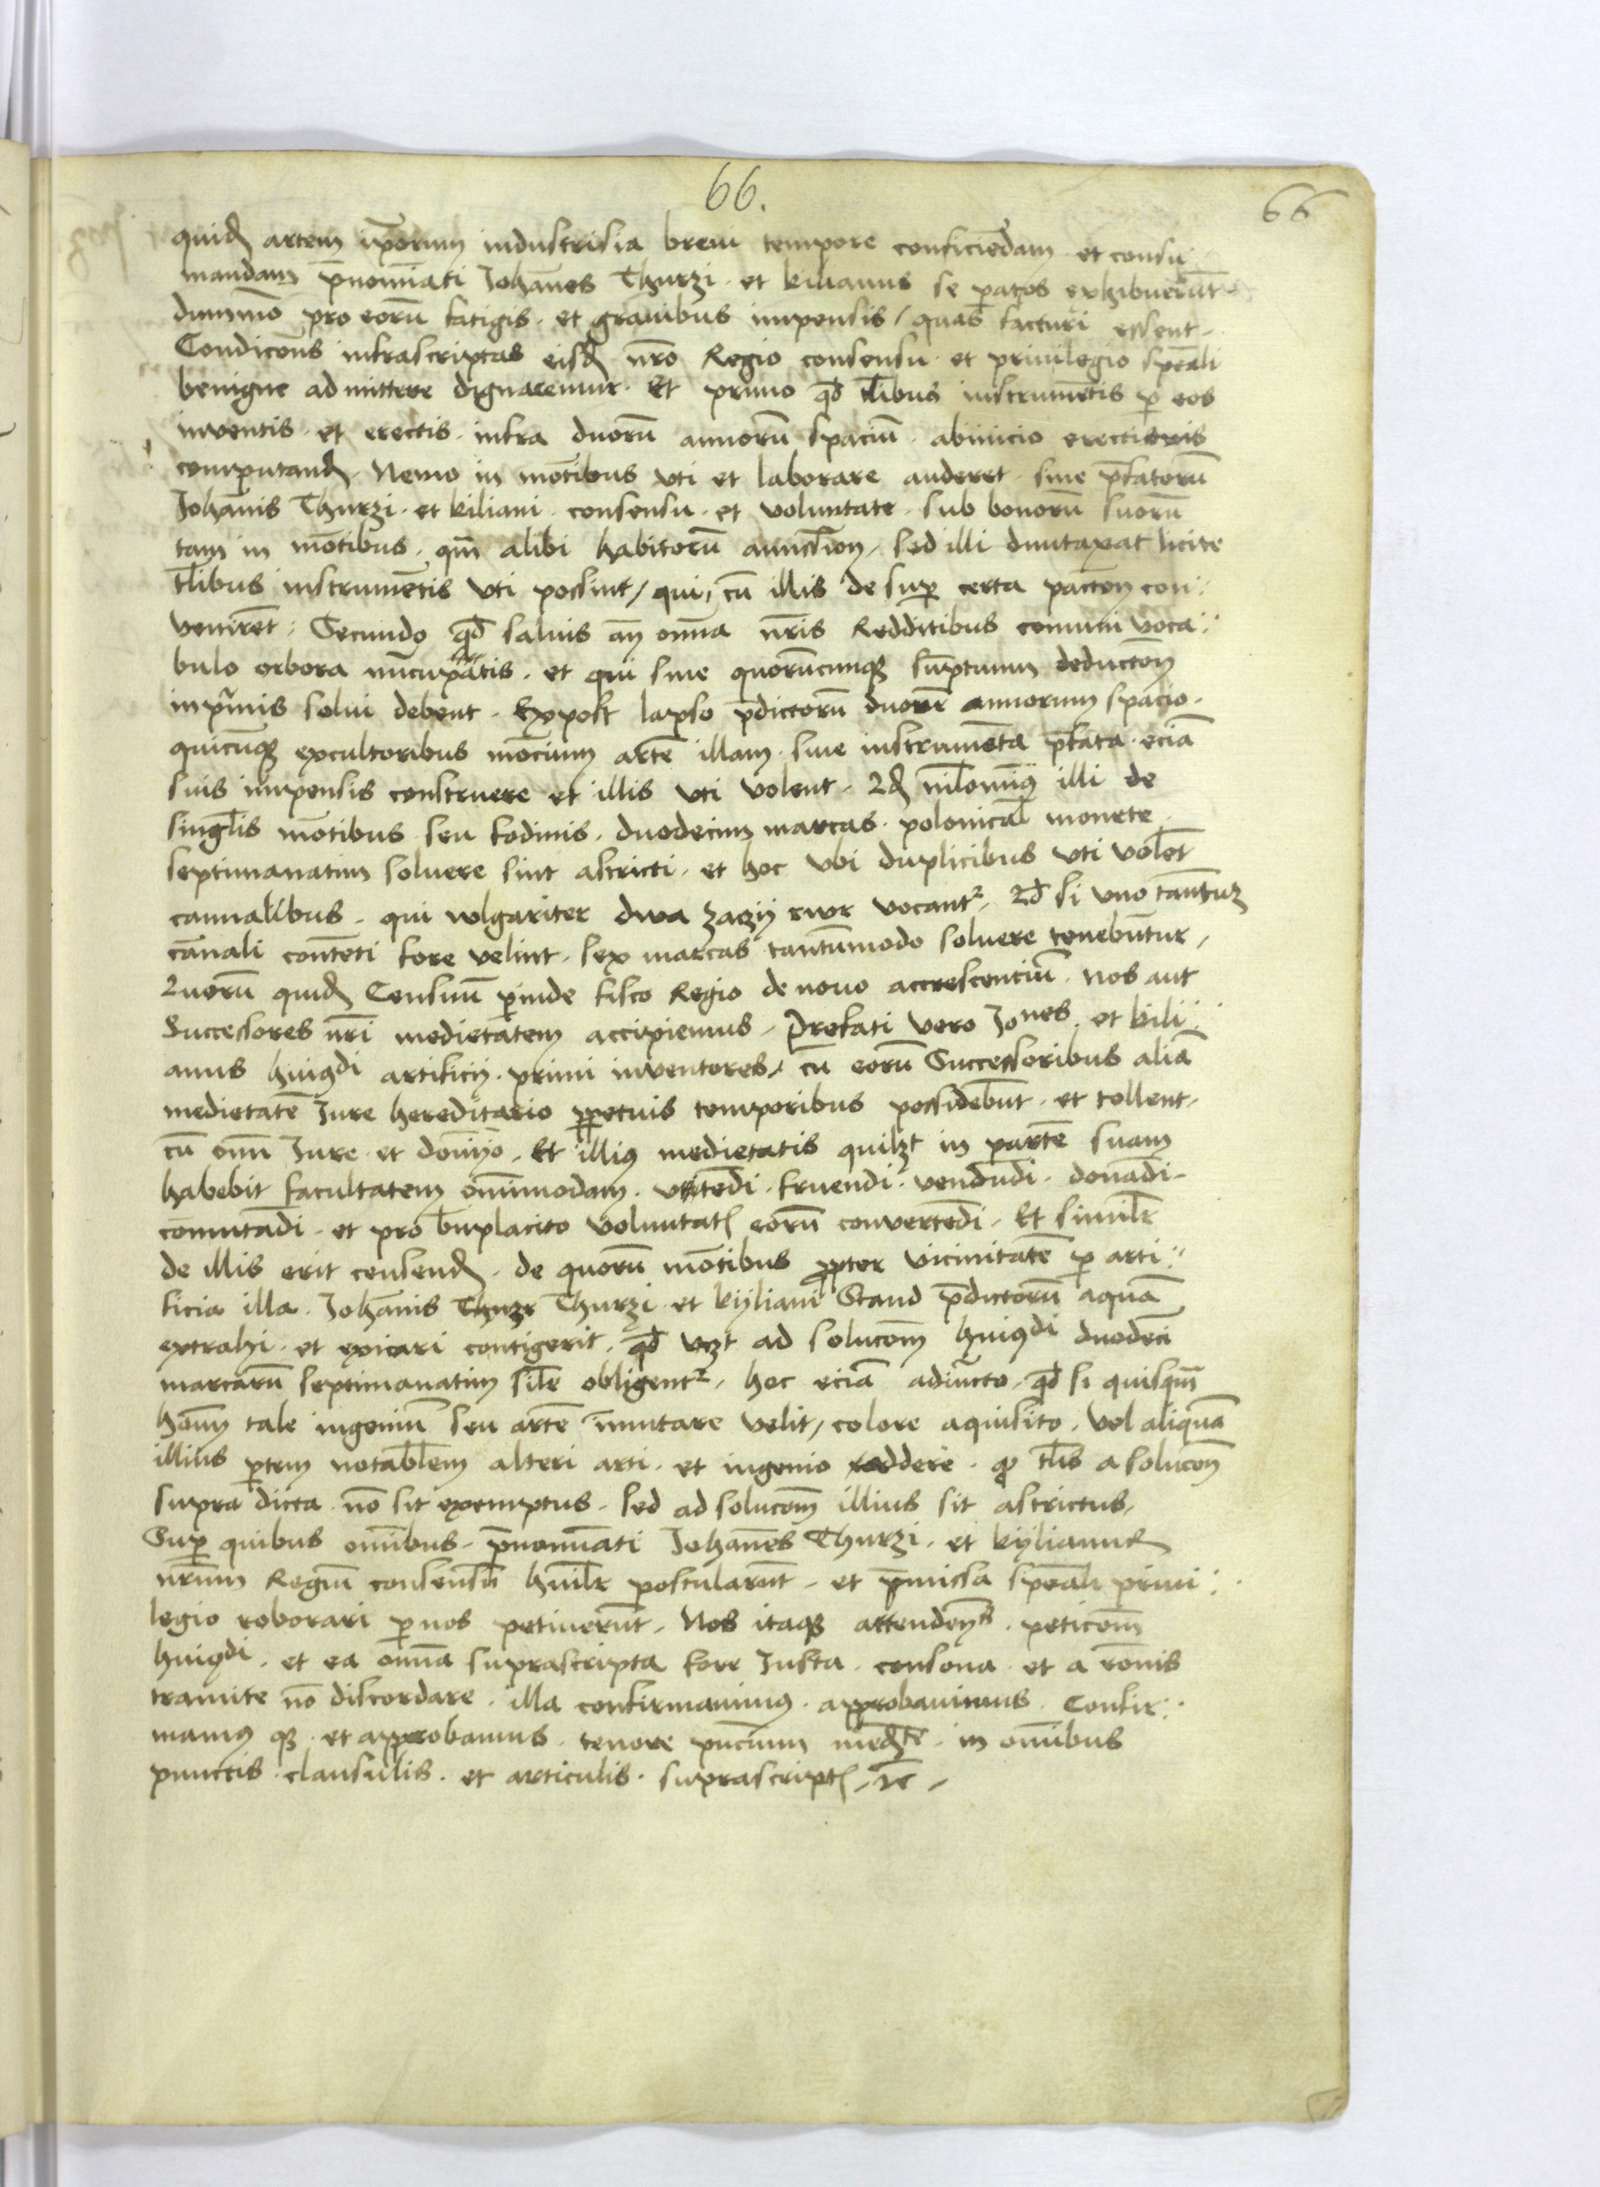 66.
66
quid̄ artem ip̄orum industrisia breui tempore conficiēdam et consu
mandam p̄nominati Johānes Thurzi et Kilianus se paratos exhibuerūt
dummō pro eorū fatigis et grauibus impensis / quas facturi essent
Condicōns infrascriptas eisd̄ nr̄o Regio consensu et priuilegio spēali
benigne admittere dignaremur Et primo qd̄ tlībus instrumētis p eos
inventis et erectis infra duorū annorū spaciū abinicio erectionis
computand̄ Nemo in mōtibus vti et laborare auderet sine p̄fatorū
Johānis Thurzi et Kiliani consensu et voluntate sub bonorū suorū
tam in mōtibus qm̄ alibi habitorū amission̄ / sed illi dumtaxat licite
tlībus instrumētis vti possint / qui cū illis desup certa paction̄ con
venirēt Secundo qd̄ saluis an̄ omn̄a nr̄is Redditibus comuni voca
bulo orbora nūcupatis et qui sine quorūcunqʒ sūptuum deduction̄
inprīmis solui debent Expost lapso p̄dictorū duorū annorum spacio
quicūqʒ excultoribus mōcium artē illam siue instrumēta p̄fata eciā
suis impensis construere et illis vti volent Qd̄ nilominꝰ illi de
singl̄is mōtibus seu fodinis duodecim marcas polonical̄ monete
septimanatim soluere sint astricti et hoc vbi duplicibus vti volēt
cannalibus qui wlgariter dwa zaczij rwr vocant᷑ Qd̄ si vno tantuʒ
cānali contēti fore velint sex marcas tantūmodo soluere tenebūtur
Quorū quid̄ Censuū p̄inde fisco Regio de nouo accrescenciū Nos aut
Successores nr̄i medietatem accipiemus Prefati vero Joñes et Kili
anus huiꝰdi artificij primi inventores / cū eorū Successoribus aliā
medietatē Jure hereditario ppetuis temporibus possidebūt et tollent
cū omī Jure et domijo Et illiꝰ medietatis quilʒt in partē suam
habebit facultatem omimodam vtēdi fruendi vendēdi donādi
comutādi et pro bn̄placito voluntatꝭ eorū convertēdi Et similr̄
de illis erit censend̄ de quorū mōtibus ppter vicinitatē p arti
ficia illa Johānis Thuzr Thurzi et Kijliani Stand p̄dictorū aquā
extrahi et exicari contigerit qd̄ vʒt ad solucōm huiꝰdi duodeci
marcarū septimanatim sil̄r obligent᷑ hoc eciā adiūcto qd̄ si quisqm̄
hoīm tale ingeniū seu artē īmutare velit / colore aquisito vel aliquā
illius ptem notabl̄em alteri arti et ingenio addere qʒ tl̄is a solucōn
supra dicta nō sit exemptus sed ad solucōm illius sit astrictus
Sup quibus omībus p̄nomināti Johānes Thurzi et Kijlianus
nr̄um Regiū consensū hūilr̄ postularūt et p̄missa spēali priui
legio roborari p nos petiuerūt Nos itaqʒ attendentes peticōm
huiꝰdi et ea omn̄a suprascripta fore Justa consona et a rōnis
tramite nō discordare illa confirmauimus approbauimus Confir
mamus qʒ et approbamus tenore pn̄cium medʒte in omībus
punctis clausulis et articulis suprascriptꝭ etc